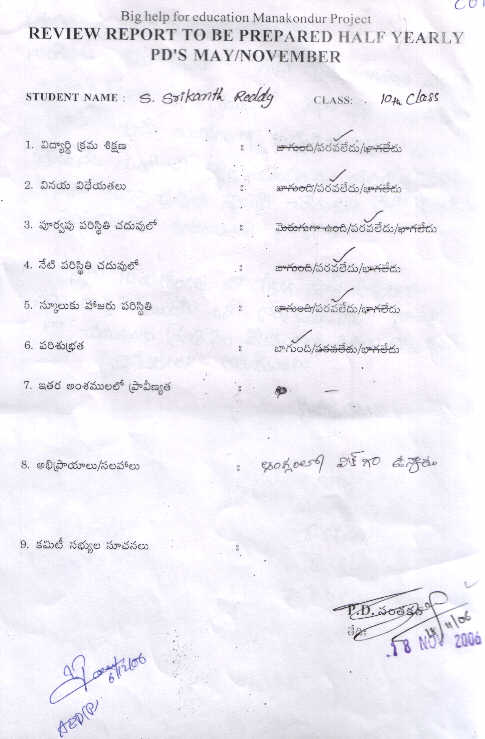 Big help for education Manakondur Project
REVIEW REPORT TO BE PREPARED HALF YEARLY
PD'S MAY/NOVEMBER
STUDENT NAME : S. Srikanth Reddy CLASS: . 10th Class
1. విద్యార్థి క్రమ శిక్షణ : బాగుంది/పరవలేదు/బాగలేదు
2. వినయ విధేయతలు : బాగుంది/పరవలేదు/బాగలేదు
3. పూర్వపు పరిస్థితి చదువులో : మెరుగుగా ఉంది/పరవలేదు/బాగలేదు
4. నేటి పరిస్థితి చదువులో : బాగుంది/పరవలేదు/బాగలేదు
5. స్కూలుకు హాజరు పరిస్థితి : బాగుంది/పరవలేదు/బాగలేదు
6. పరిశుభ్రత : బాగుంది/పరవలేదు/బాగలేదు
7. ఇతర అంశములలో ప్రావీణ్యత : –
8. అభిప్రాయాలు/సలహాలు : వీక్ గా ఉన్నాడు
9. కమిటీ సభ్యుల సూచనలు :
P.D. సంతకం
తేది
18 NOV 2006
6/12/06